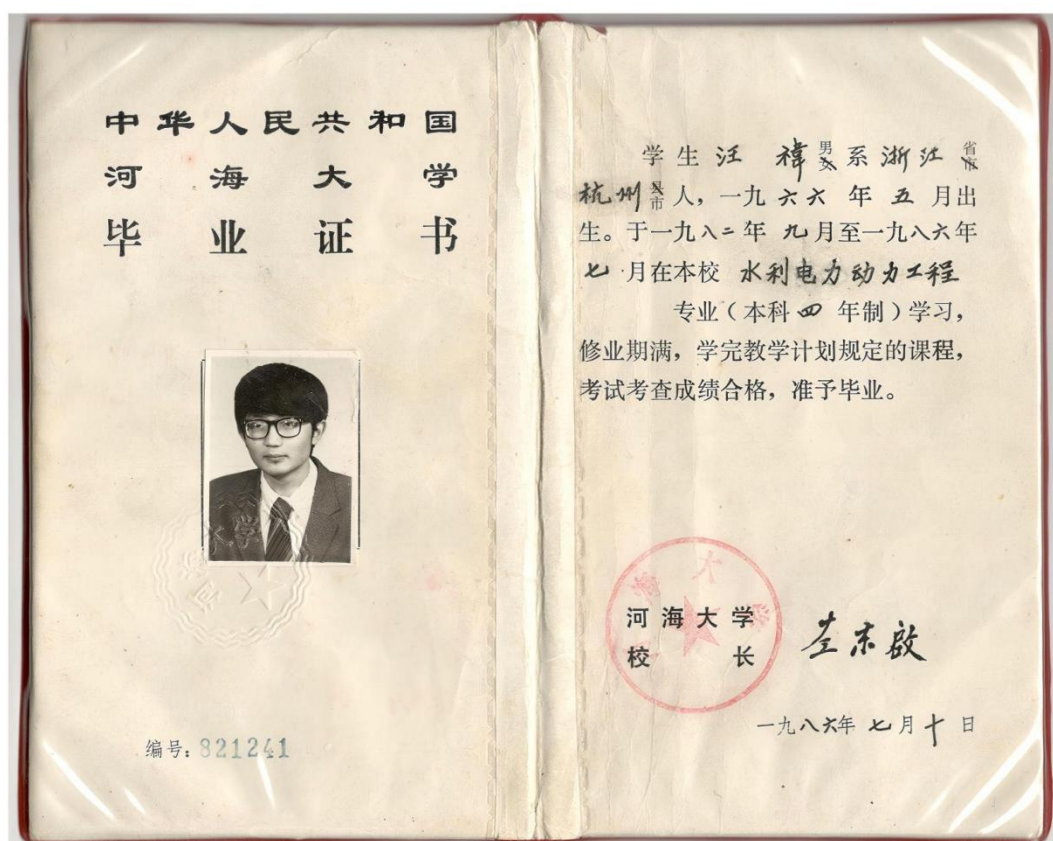 中华人民共和国
河海大学
毕业证书
编号：821241
学生汪 祎 男女系浙江省市
杭州县市人，一九六六年五月出
生。于一九八二年九月至一九八六年
七月在本校水利电力动力工程
专业（本科四年制）学习，
修业期满，学完教学计划规定的课程，
考试考查成绩合格，准予毕业。
河海大学
校长 左东启
一九八六年七月十日